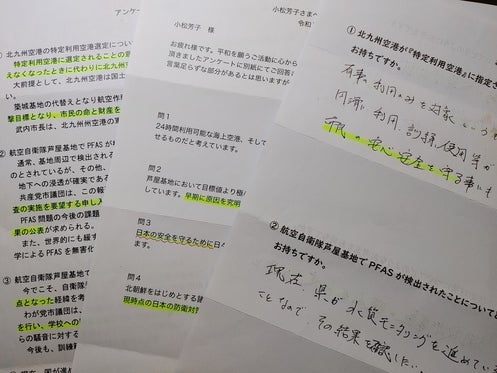 アンケー
① 北九州空港の特定利用空港選定につい
特定利用空港に選定されることの意
えなくなったときに代わりに北九州
大前提として、北九州空港は国土
築城基地の代替えとなり航空作
撃目標となり、市民の命と財産を
武内市長は、北九州空港の軍
せるものだ。
② 航空自衛隊芦屋基地で PFAS が検
通常、基地周辺で検出される
のとされているが、その他、
地下への浸透が確実であ
共産党市議団は、この報
査の実施を要望する申し入
PFAS 問題の今後の課題
果の公表が求められる。
また、世界的にも緩す
学による PFAS を無害化
③
今でこそ、自衛隊
点となった経緯を考
わが党市議団は、
を行い、学校への
らの騒音に対する
今後も、訓練
小松芳子 様
お疲れ様です。平和を願うご活動に心から
頂きましたアンケートに別紙にてご回答
言葉足らずな部分があるとは思いますが
問1
24時間利用可能な海上空港、そして
るものだと考えています。
問2
芦屋基地において目標値より極
しています。早期に原因を究明
問3
日本の安全を守るために日々
ます。
問4
北朝鮮をはじめとする諸
現時点の日本の防衛対
小松芳子さま
令和
① 北九州空港が『特定利用空港』に指定さ
お持ちですか。
有事の利用のみを対象という
円滑に利用、訓練使用等が
市民の安心安全を守る事に
② 航空自衛隊芦屋基地で PFAS が検出されたことについて
お持ちですか。
現在、県が水質モニタリングを進めてい
ことなので、その結果を確認したい。